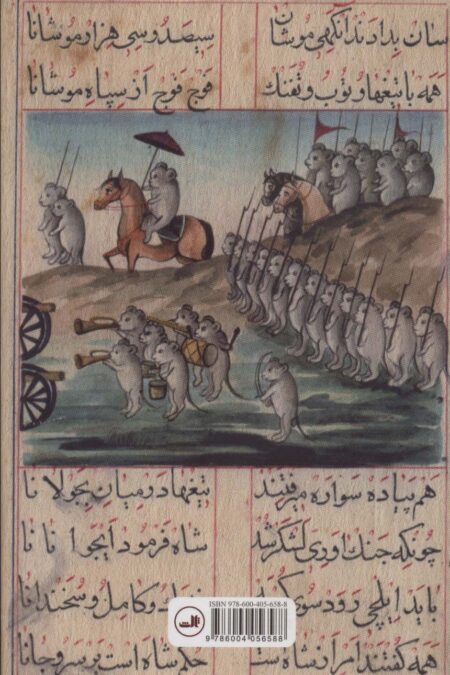 سان بدادند انکهی موشان سیصد و سی هزار موشانا
همه با تیغها و توپ و تفنك فوج فوج از سپاه موشانا
هم پیاده سواره میرفتند تیغها در میان بجولانا
چونکه جنك اوری لشکر شد شاه فرمود ایجوانانا
باید ایلچی رود سوی و کامل و سخندانا
همه کفتند امر از شاه حکم شاه است بر سر و جانا
ISBN 978-600-405-658-8
9 786004 056588
ثالث